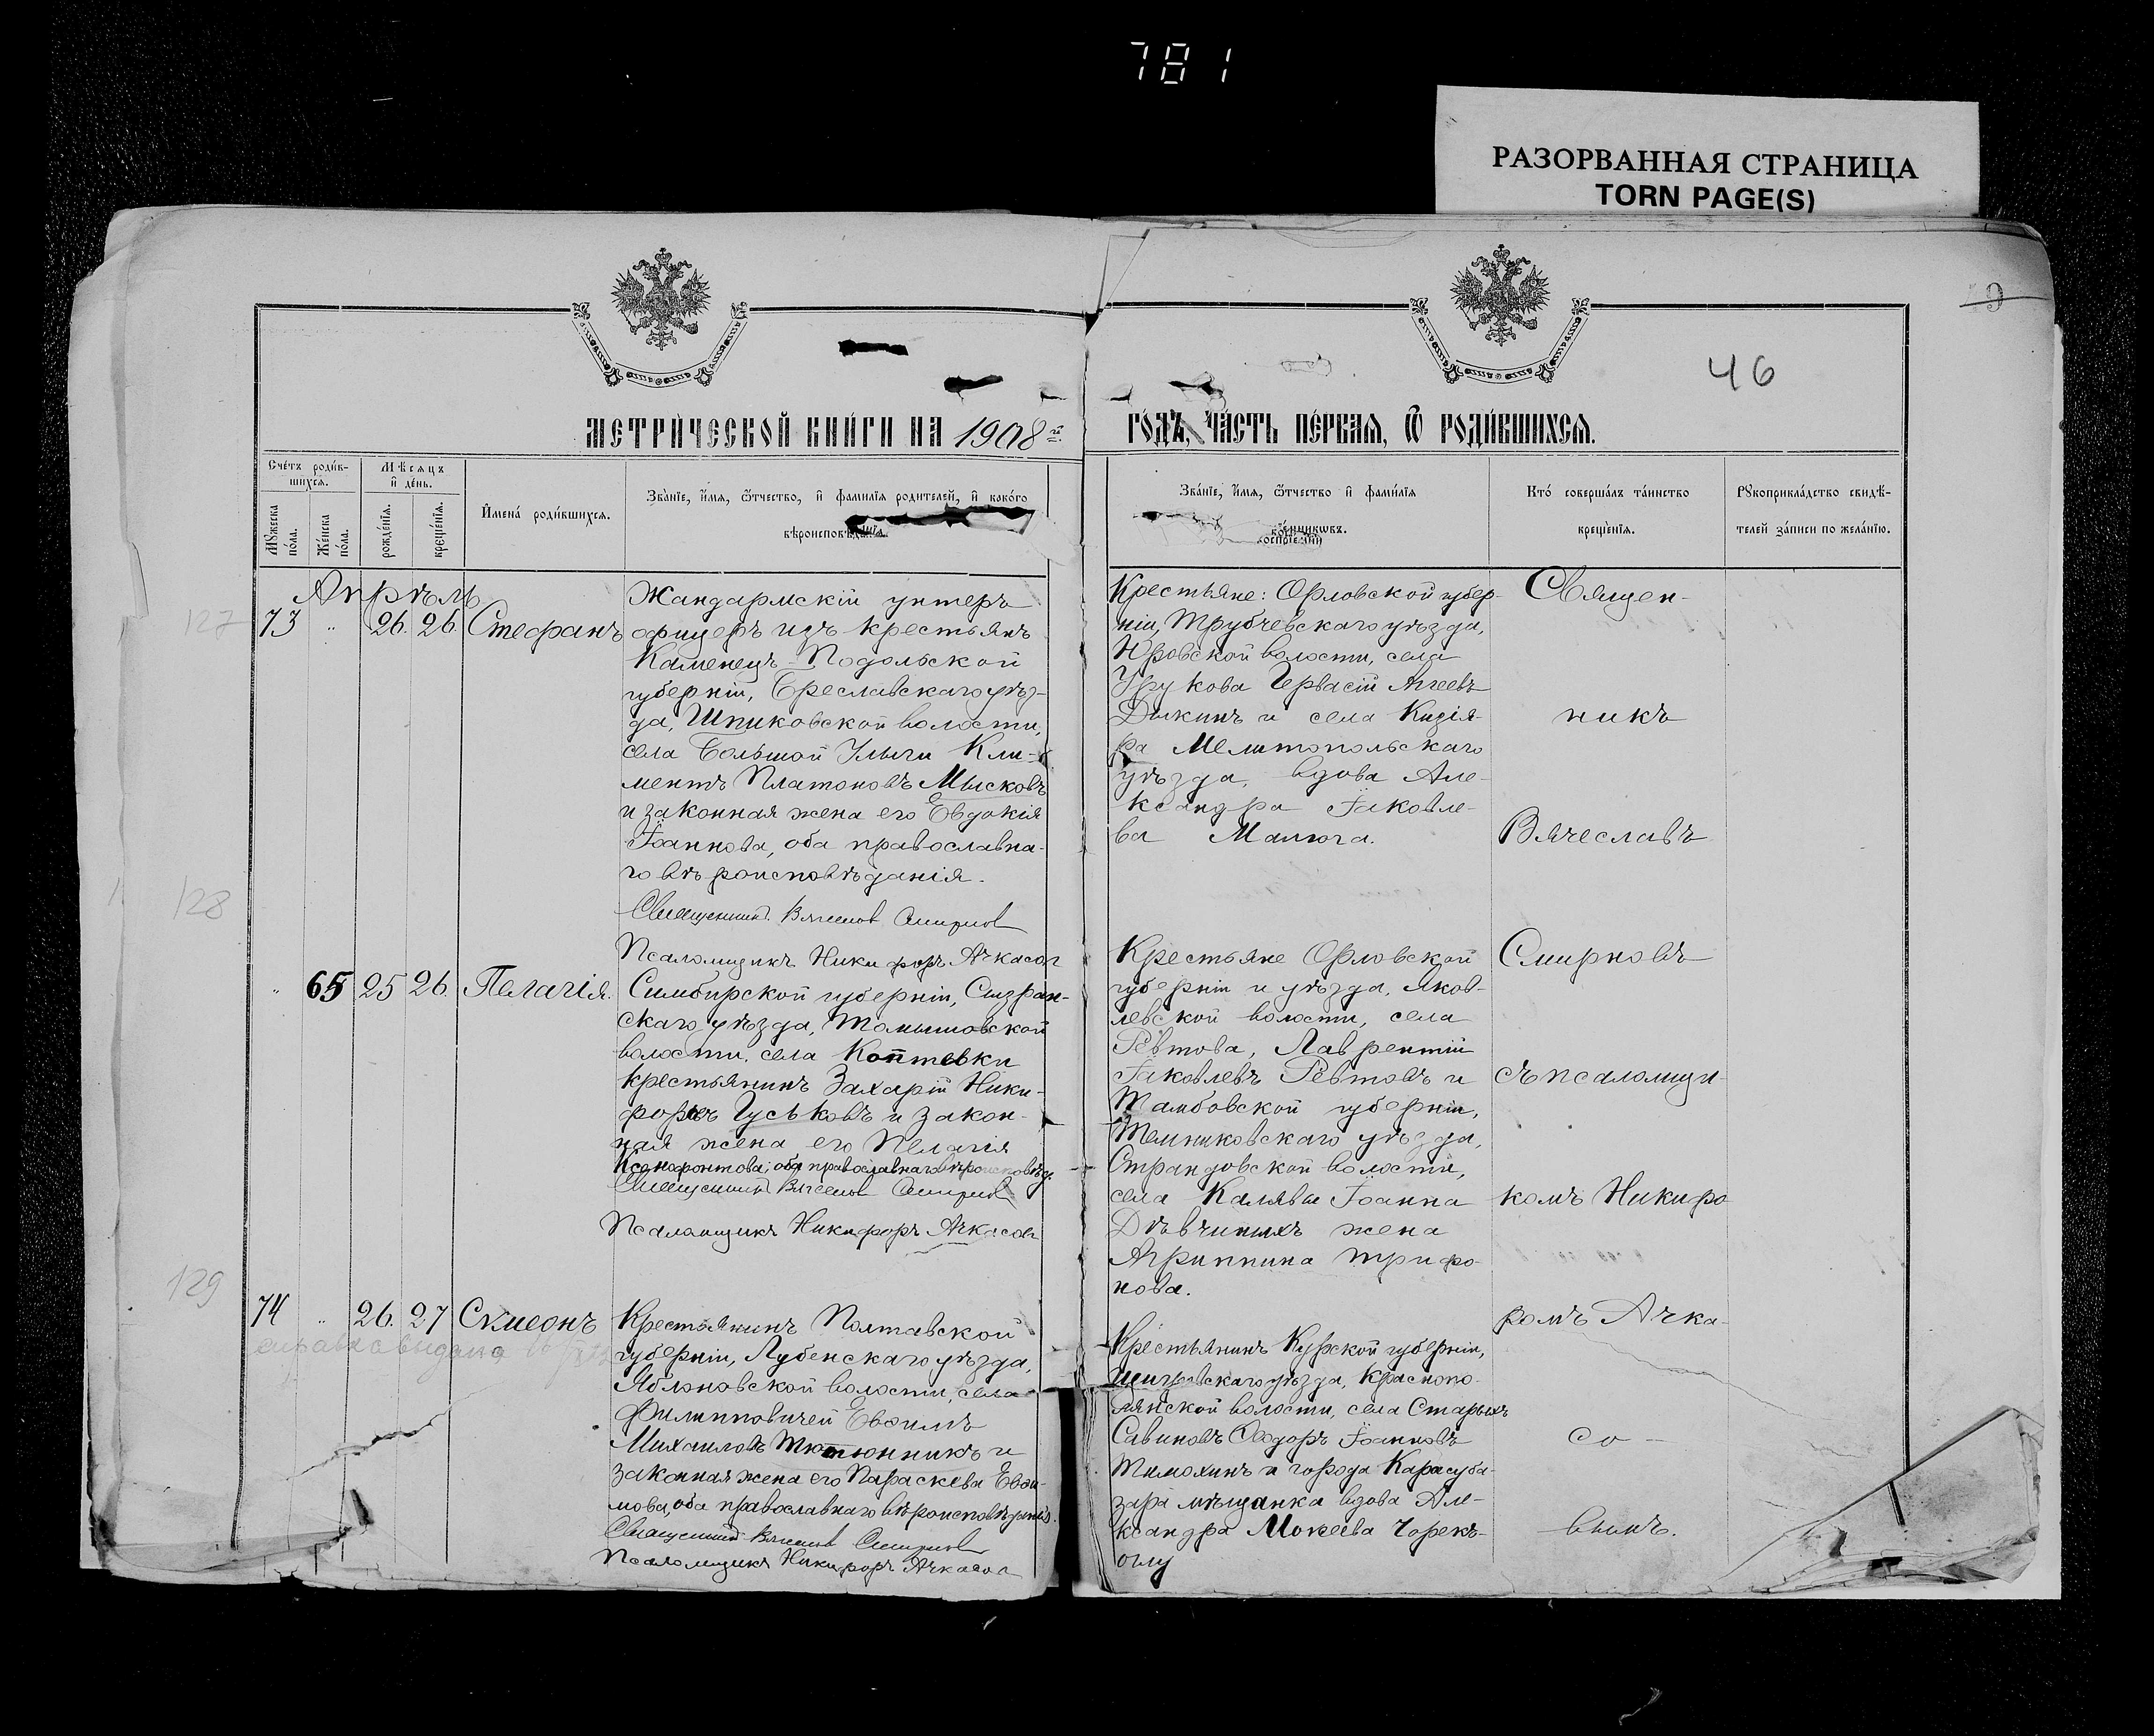 781
РАЗОРВАННАЯ СТРАНИЦА
TORN PAGE(S)
46
МЕТРИЧЕСКОЙ КНИГИ НА 1908 й
ГОДЪ, ЧАСТЬ ПЕРВАЯ, Ѡ РОДИВШИХСЯ.
Счетъ родив-
шихся.
Мужеска пола.
Женска пола.
Мѣсяцъ
и день.
рожденія.
крещенія.
Имена родившихся.
Званіе, имя, ѿчество, и фамилія родителей, и какого
вѣроисповѣданія.
Званіе, имя, ѿчество и фамилія
воспріемниковъ.
Кто совершалъ таинство
крещенія.
Рукоприкладство свидѣ-
телей записи по желанію.
Апрѣль
127
73 " 26. 26. Стефанъ
Жандармскій унтеръ
офицеръ изъ крестьянъ
Каменецъ-Подольской
губерніи, Бреславскаго уѣз-
да, Шпиковской волости,
села Большой Улыги Кли-
ментъ Платоновъ Мысковъ
и законная жена его Евдокія
Іоаннова, оба православна-
го вѣроисповѣданія.
Священникъ Вячеслав Смирнов
Псаломщикъ Никифоръ Ачкасов
Крестьяне: Орловской губер-
ніи, Трубчевскаго уѣзда,
Юровской волости, села
Гервасій Агеевъ
Дыкинъ и села Кизія-
ра Мелитопольскаго
уѣзда, вдова Але-
ксандра Іаковле-
ва Малюга.
128
" 65 25 26. Пелагія.
Симбирской губерніи, Сызран-
скаго уѣзда, Томышовской
волости, села Коптевки
крестьянинъ Захарій Ники-
форовъ Гуськовъ и закон-
ная жена его Пелагія
Ксенофонтова; оба православнаго вѣроисповѣд.
Священникъ Вячеслав Смирнов
Псаломщикъ Никифоръ Ачкасовъ
Крестьяне Орловской
губерніи и уѣзда, Яков-
левской волости, села
Ревтова, Лаврентій
Іаковлевъ Ревтовъ и
Тамбовской губерніи,
Темниковскаго уѣзда,
Страндовской волости,
села Каляевы Іоанна
Дѣвчиныхъ жена
Агриппина Трифо-
нова.
129
74 " 26. 27 Сѵмеонъ
справка выдана
Крестьянинъ Полтавской
губерніи, Лубенскаго уѣзда,
Яблоновской волости, села
Филипповичей Евѳимъ
Михаиловъ Тютюнникъ и
законная жена его Параскева Евѳи-
мова, оба православнаго вѣроисповѣданія.
Священникъ Вячеслав Смирнов
Псаломщикъ Никифоръ Ачкасов
Крестьянинъ Курской губерніи,
Щигровскаго уѣзда, Краснопо-
лянской волости, села Старыхъ
Савиновъ Ѳеодоръ Іоанновъ
Тимохинъ и города Карасуба-
зара мѣщанка вдова Але-
ксандра Мокеева Чорекъ-
оглу
Священ-
никъ
Вячеславъ
Смирновъ
съ псаломщи-
комъ Никифо-
ромъ Ачка-
со-
вымъ.